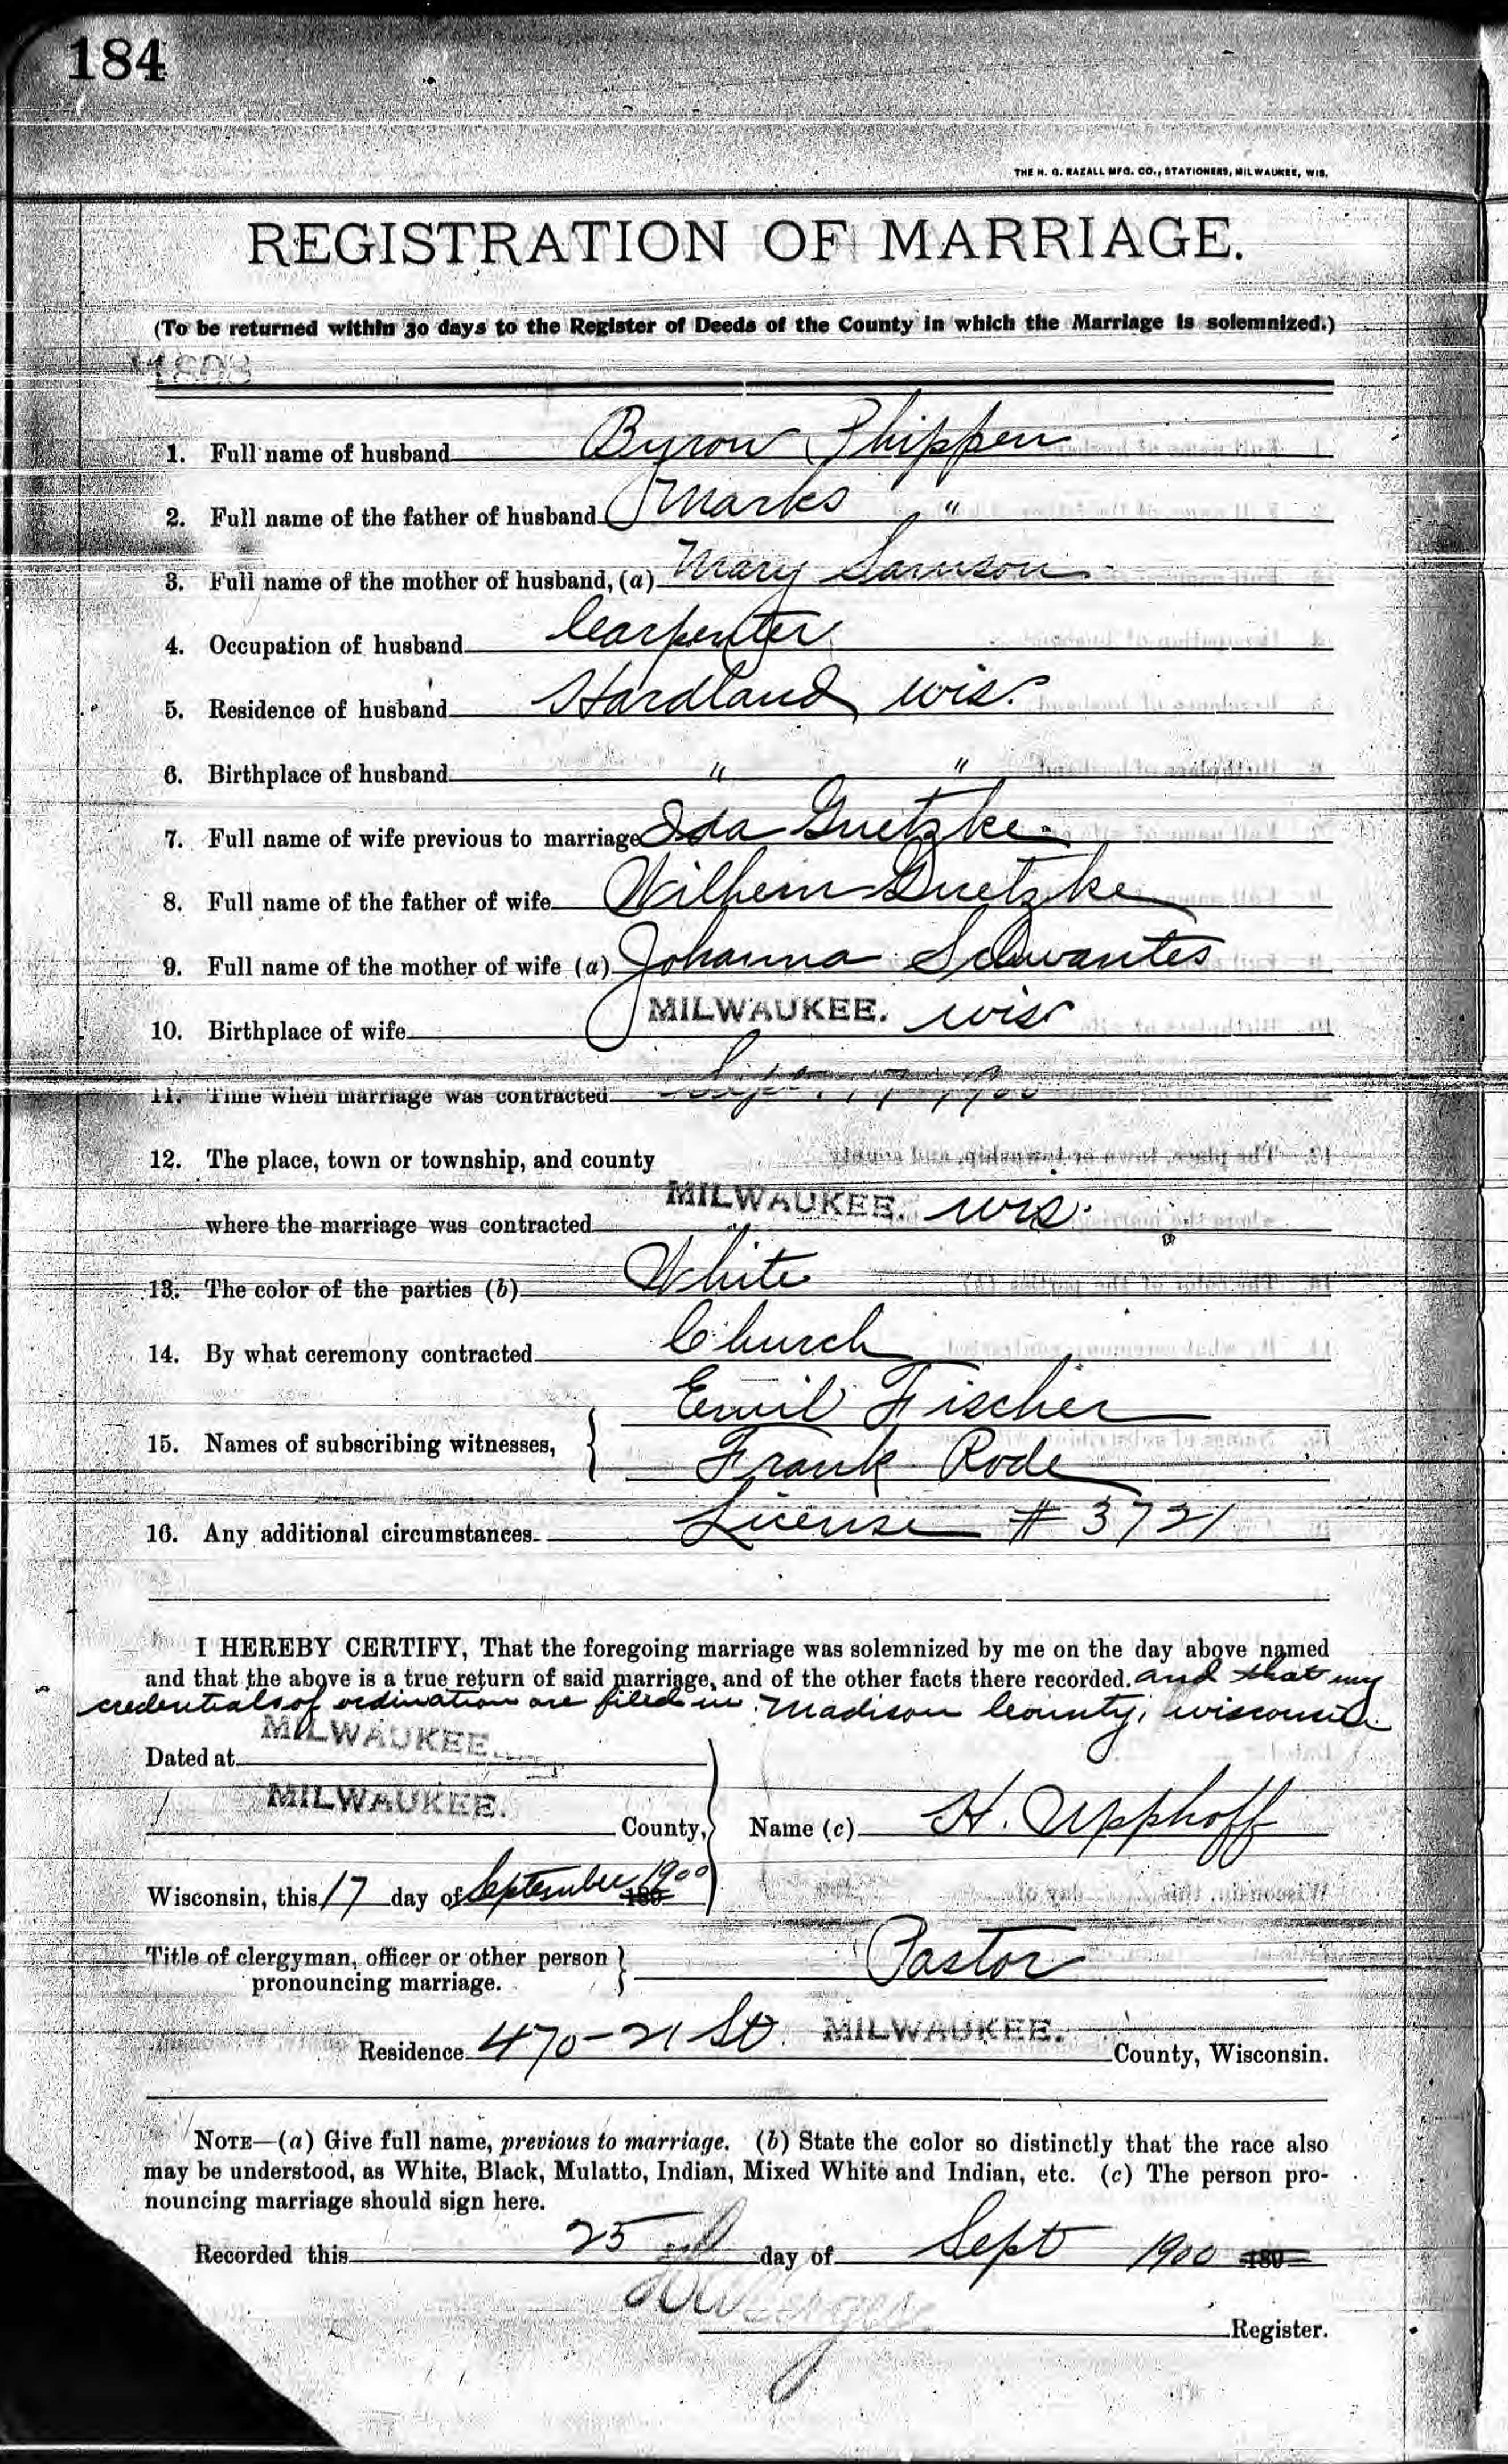 184
THE H. G. RAZALL MFG. CO., STATIONERS, MILWAUKEE, WIS.
REGISTRATION OF MARRIAGE.
(To be returned within 30 days to the Register of Deeds of the County in which the Marriage is solemnized.)
1. Full name of husband Byron Phippen
2. Full name of the father of husband Marks "
3. Full name of the mother of husband, (a) Mary Samson
4. Occupation of husband Carpenter
5. Residence of husband Hardland Wis.
6. Birthplace of husband " "
7. Full name of wife previous to marriage Ida Guetzke
8. Full name of the father of wife Wilhem Guetzke
9. Full name of the mother of wife (a) Johanna Schwantes
10. Birthplace of wife MILWAUKEE. Wis
11. Time when marriage was contracted Sept. 17 1900
12. The place, town or township, and county
where the marriage was contracted MILWAUKEE. Wis.
13. The color of the parties (b) White
14. By what ceremony contracted Church
Emil Fischer
15. Names of subscribing witnesses,
Frank Rode
16. Any additional circumstances License # 3721
I HEREBY CERTIFY, That the foregoing marriage was solemnized by me on the day above named
and that the above is a true return of said marriage, and of the other facts there recorded. and that my
credentials of ordination are filed in Madison County, Wisconsin.
Dated at MILWAUKEE
MILWAUKEE. County, Name (c) H. Upphoff
Wisconsin, this 17 day of September 1900 189
Title of clergyman, officer or other person
pronouncing marriage. Pastor
Residence 470-21 St MILWAUKEE. County, Wisconsin.
NOTE—(a) Give full name, previous to marriage. (b) State the color so distinctly that the race also
may be understood, as White, Black, Mulatto, Indian, Mixed White and Indian, etc. (c) The person pro-
nouncing marriage should sign here.
Recorded this 25 day of Sept 1900 189
Register.